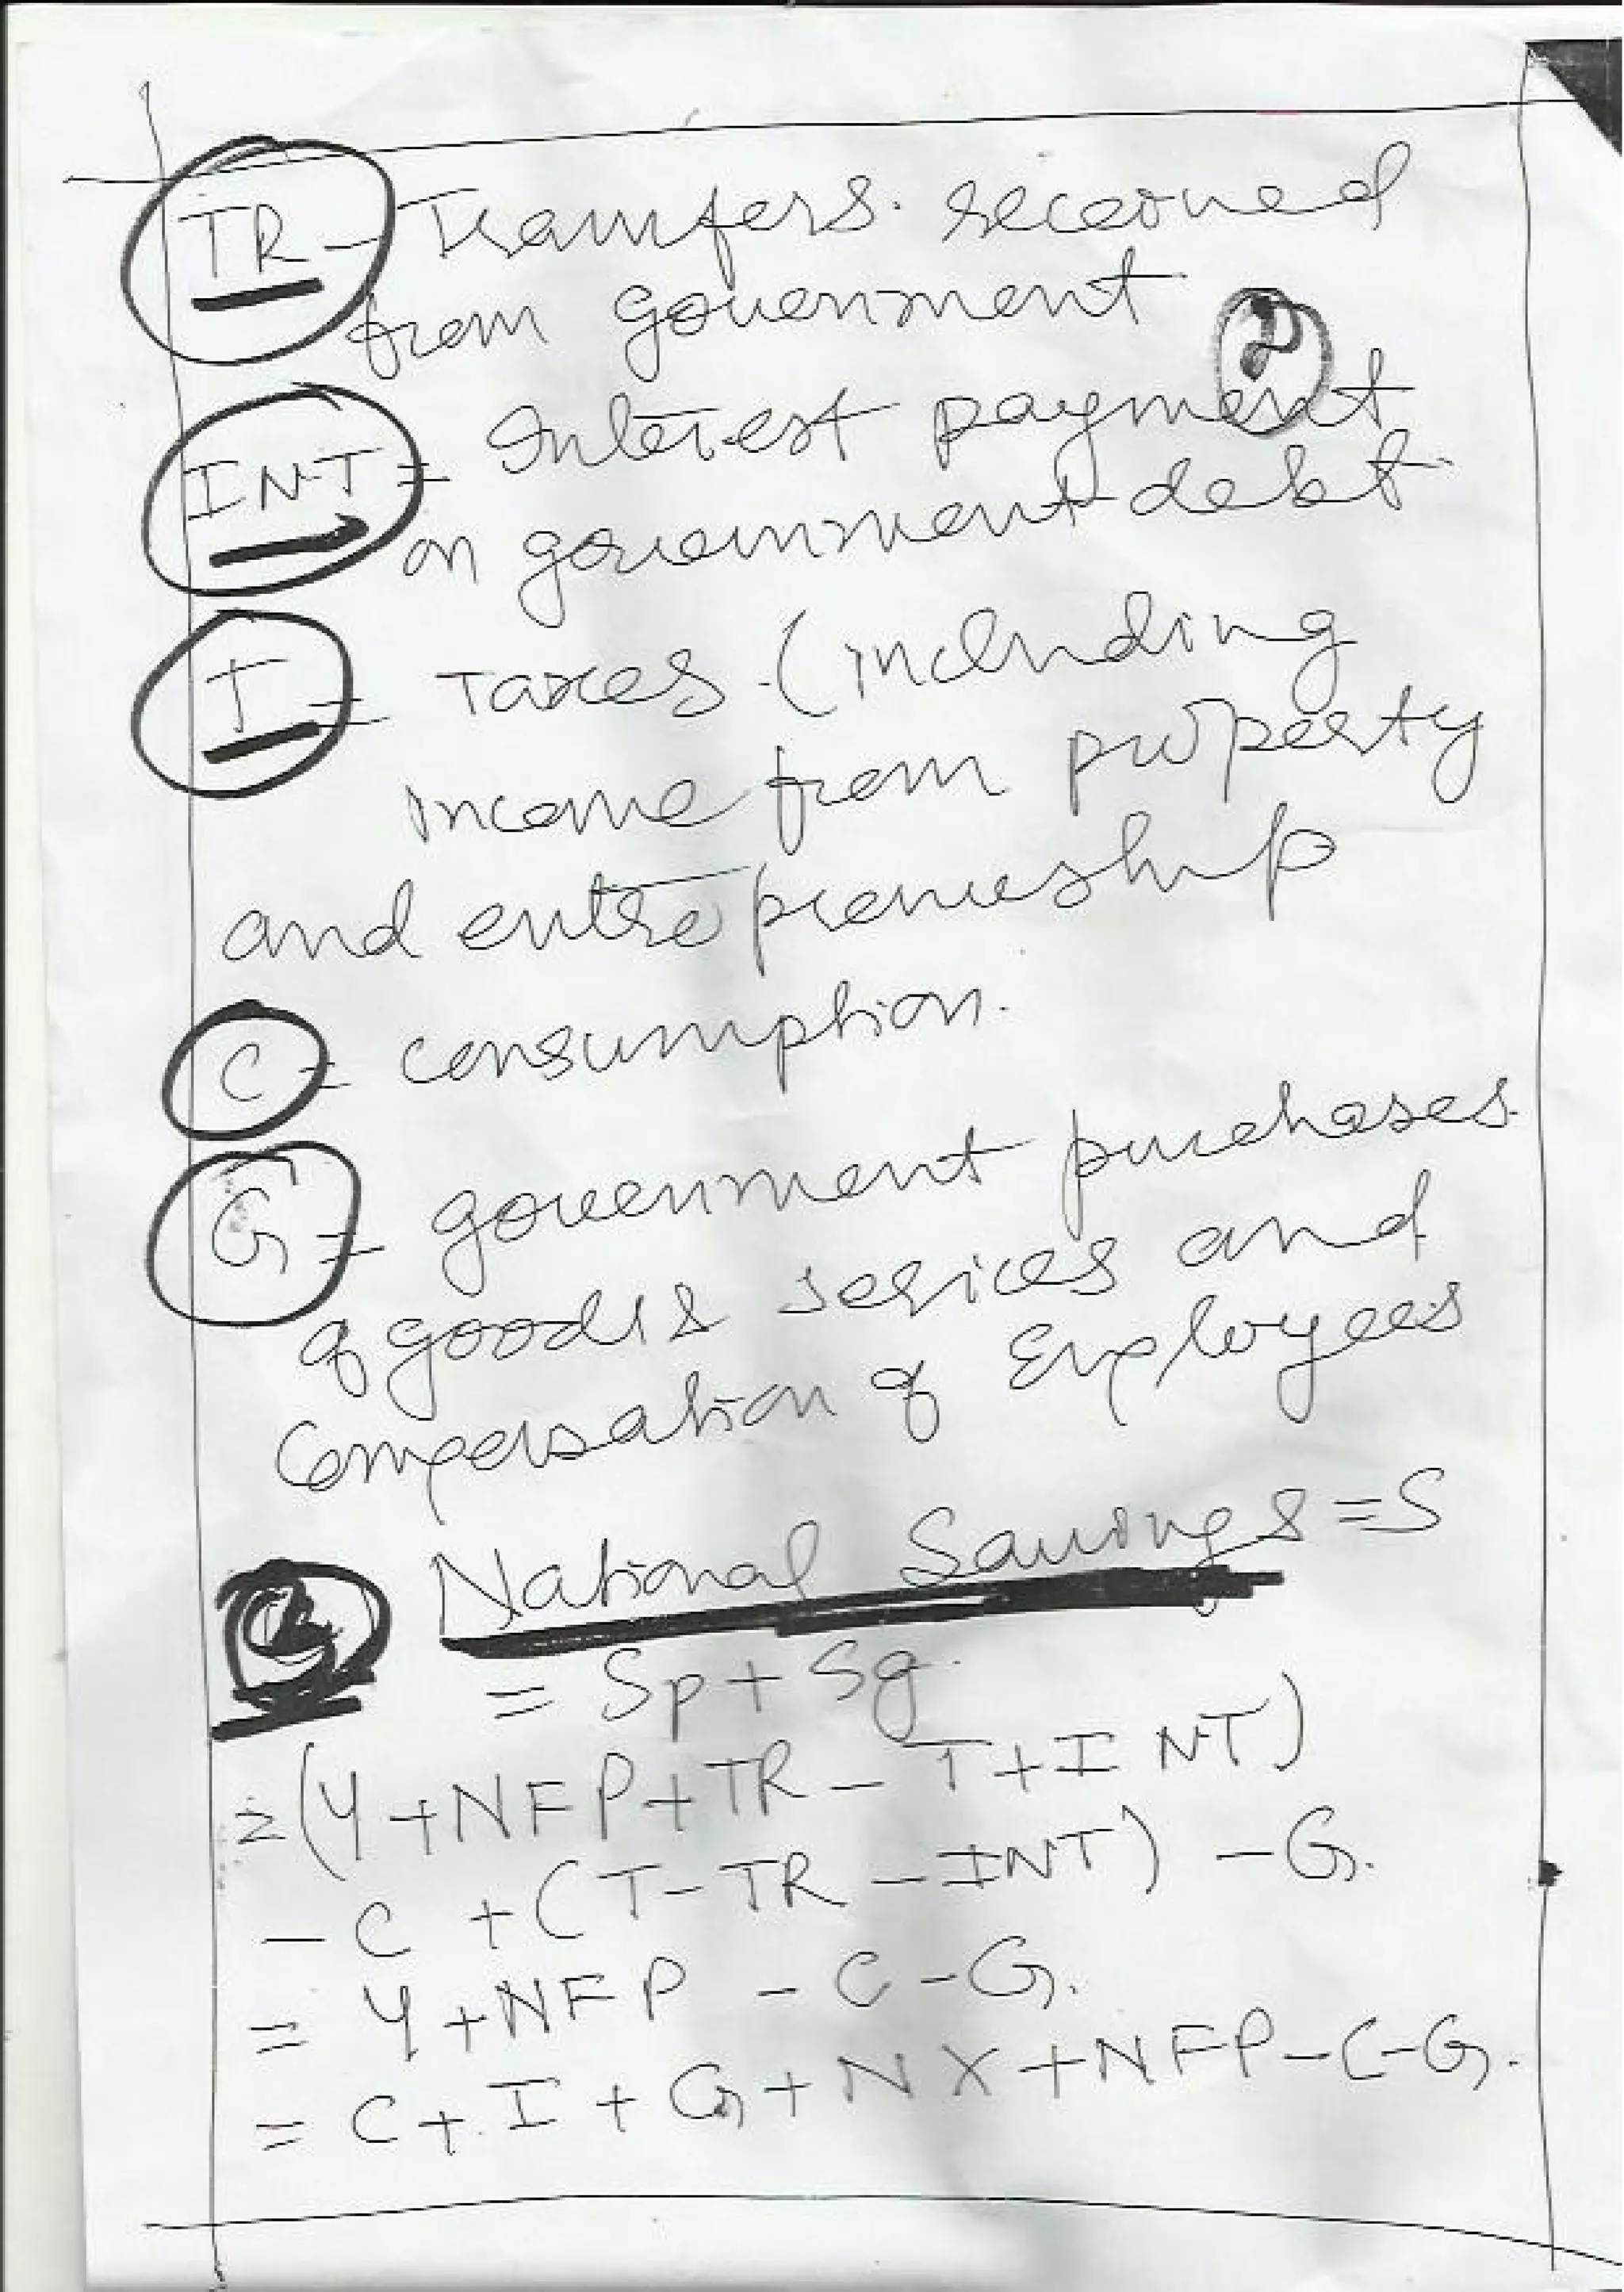 TR - Transfers received
from government
2
INT = Interest payment
on government debt
T = Taxes (including
income from property
and entrepreneuship
C = consumption.
G = government purchases
of goods & serices and
Compensation of Employees
National Savings = S
= Sp + Sg.
= (Y + NFP + TR - T + INT)
- C + (T - TR - INT) - G.
= Y + NFP - C - G.
= C + I + G + NX + NFP - C - G.